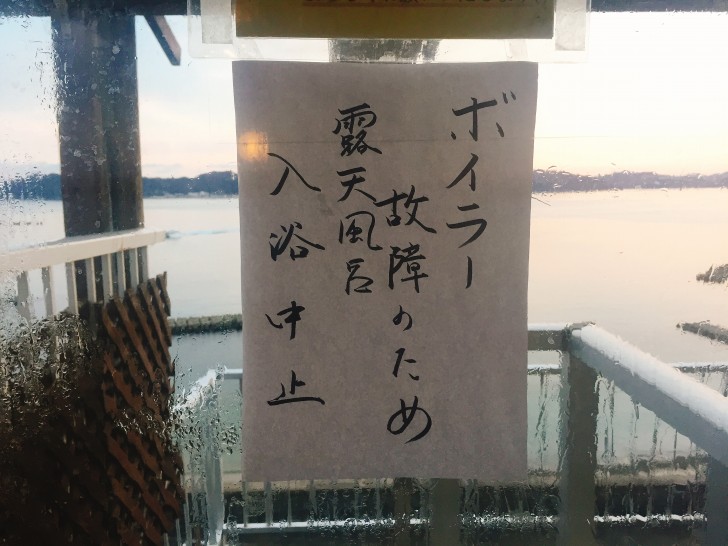 ボイラー
故障のため
露天風呂
入浴中止